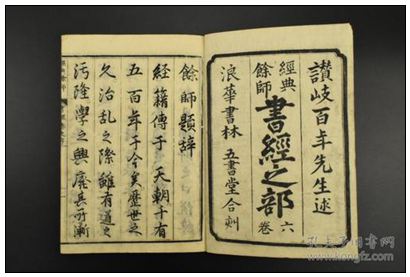 讃岐百年先生述
經典
餘師
書經之部
六
卷
浪華書林 五書堂合刻
餘師題辞
經籍傳于 天朝十有
五百年于今矣歷世之
久治乱之際雖有道之
汚隆學之興廢其所漸
孔夫子旧书网
www.kongfz.com